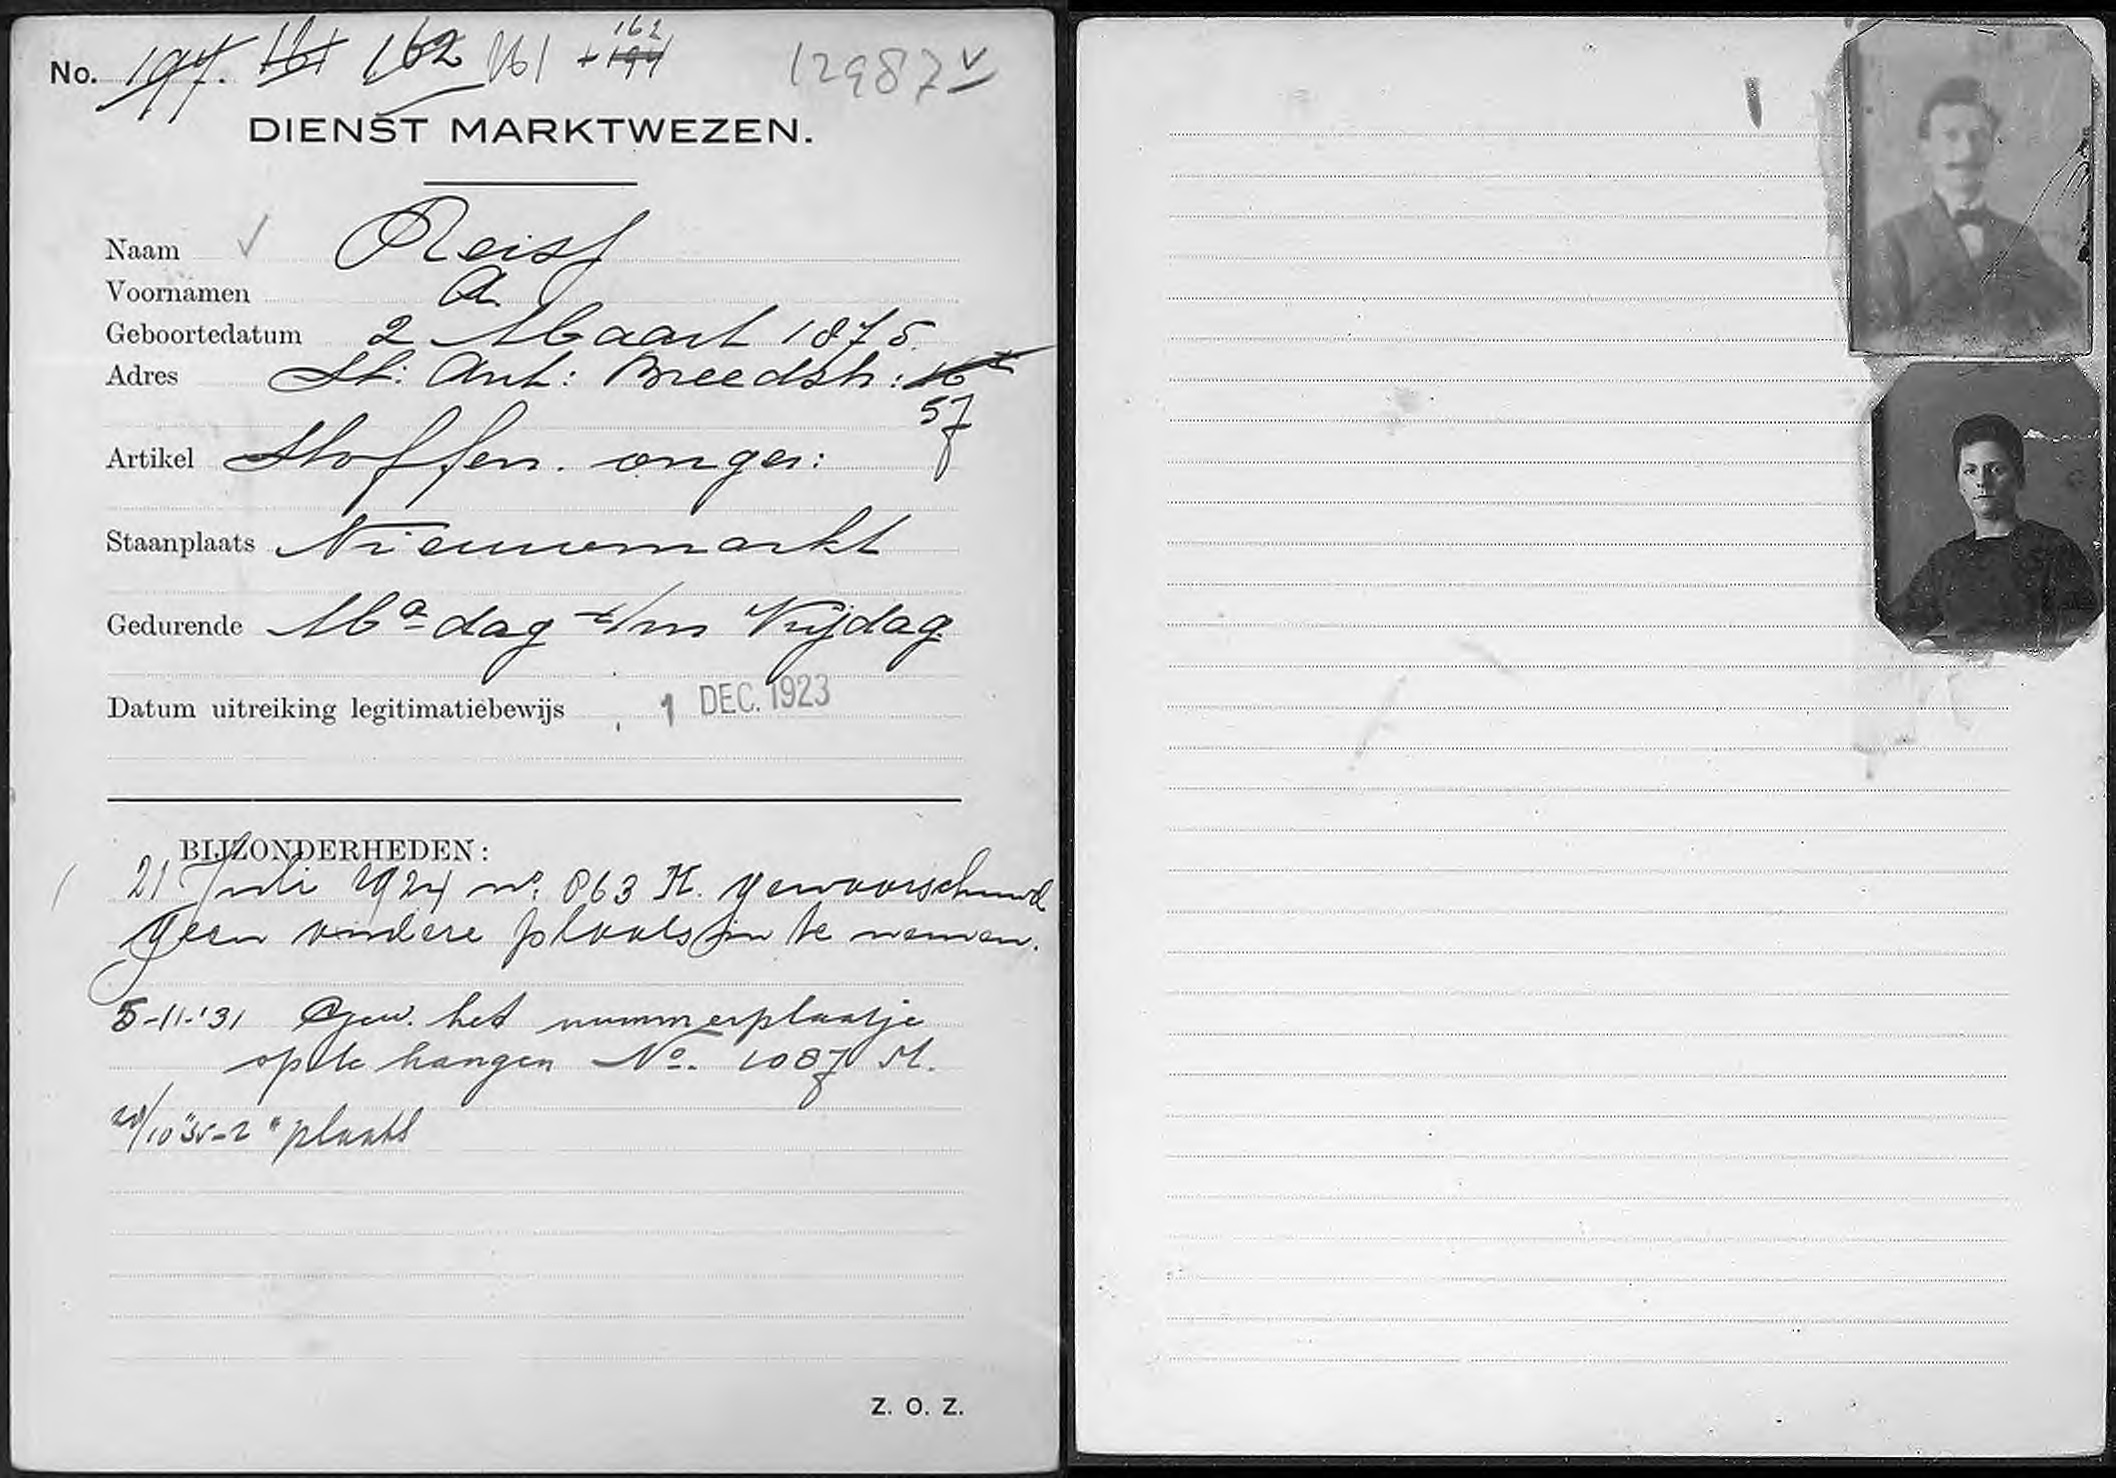 No. 197. 161 162 161 + 194 162 12987 v
DIENST MARKTWEZEN.
Naam Reiss
Voornamen A.
Geboortedatum 2 Maart 1875.
Adres St: Ant: Breedstr:
57
Artikel Stoffen. onger:
Staanplaats Nieuwemarkt
Gedurende Ma dag t/m Vrijdag
Datum uitreiking legitimatiebewijs 1 DEC. 1923
BIJZONDERHEDEN:
21 Juli 1924 no: 863 M. gewaarschuwd
geen andere plaats in te nemen.
5-11-'31 Gew. het nummerplaatje
op te hangen No. 1087 M.
plaats
Z. O. Z.